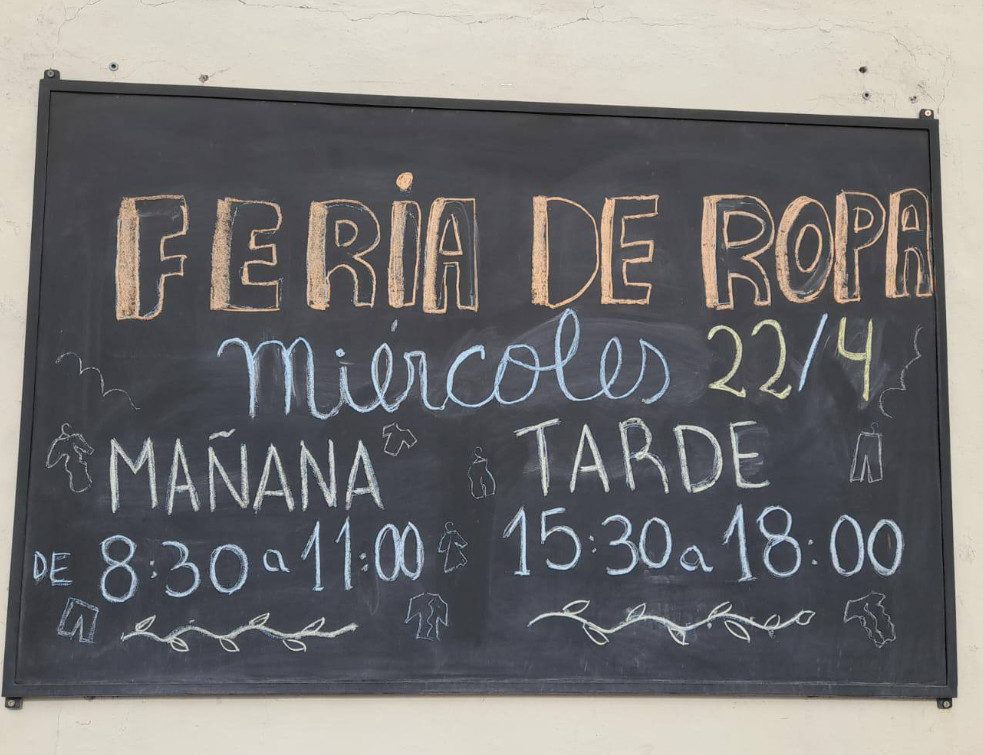 FERIA DE ROPA
miércoles 22/4
MAÑANA TARDE
DE 8:30 a 11:00 15:30 a 18:00